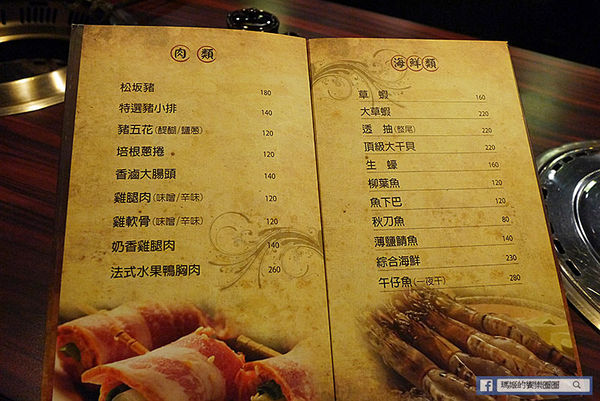 肉類
松坂豬 180
特選豬小排 140
豬五花(醍醐/鹽蔥) 120
培根蔥捲 120
香滷大腸頭 140
雞腿肉(味噌/辛味) 120
雞軟骨(味噌/辛味) 120
奶香雞腿肉 140
法式水果鴨胸肉 260
海鮮類
草蝦 160
大草蝦 220
透抽(整尾) 220
頂級大干貝 220
生蠔 160
柳葉魚 120
魚下巴 120
秋刀魚 80
薄鹽鯖魚 140
綜合海鮮 230
午仔魚(一夜干) 280
瑪姬的饗樂圈圈